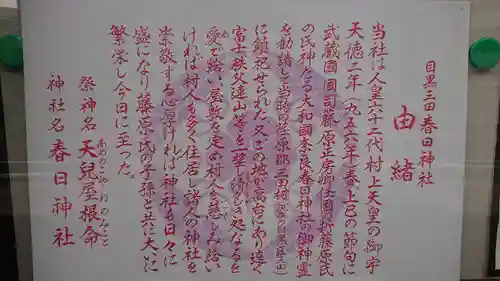 目黒三田 春日神社
由緒
当社は人皇六十二代村上天皇の御宇
天徳二年(九五八年)春上巳の節句に
武蔵國國司藤原正房卿任國の折藤原氏
の氏神なる大和國奈良春日神社の御神霊
を勧請して当時の荏原郡三田村(武蔵の目黒区三田)
に鎮祀せられた 又この地が高台にあり遠く
富士秩父連山等を一望し淨き処なるを
愛で給い屋敷を定め村人を慈しみ給い
ければ村人も多く住居し諸人の神社を
崇敬する心厚ければ神社も日々に
盛になり藤原氏の子孫と共に大いに
繁栄し今日に至った。
祭神名 天兒屋根命
あめのこやねのみこと
神社名 春日神社